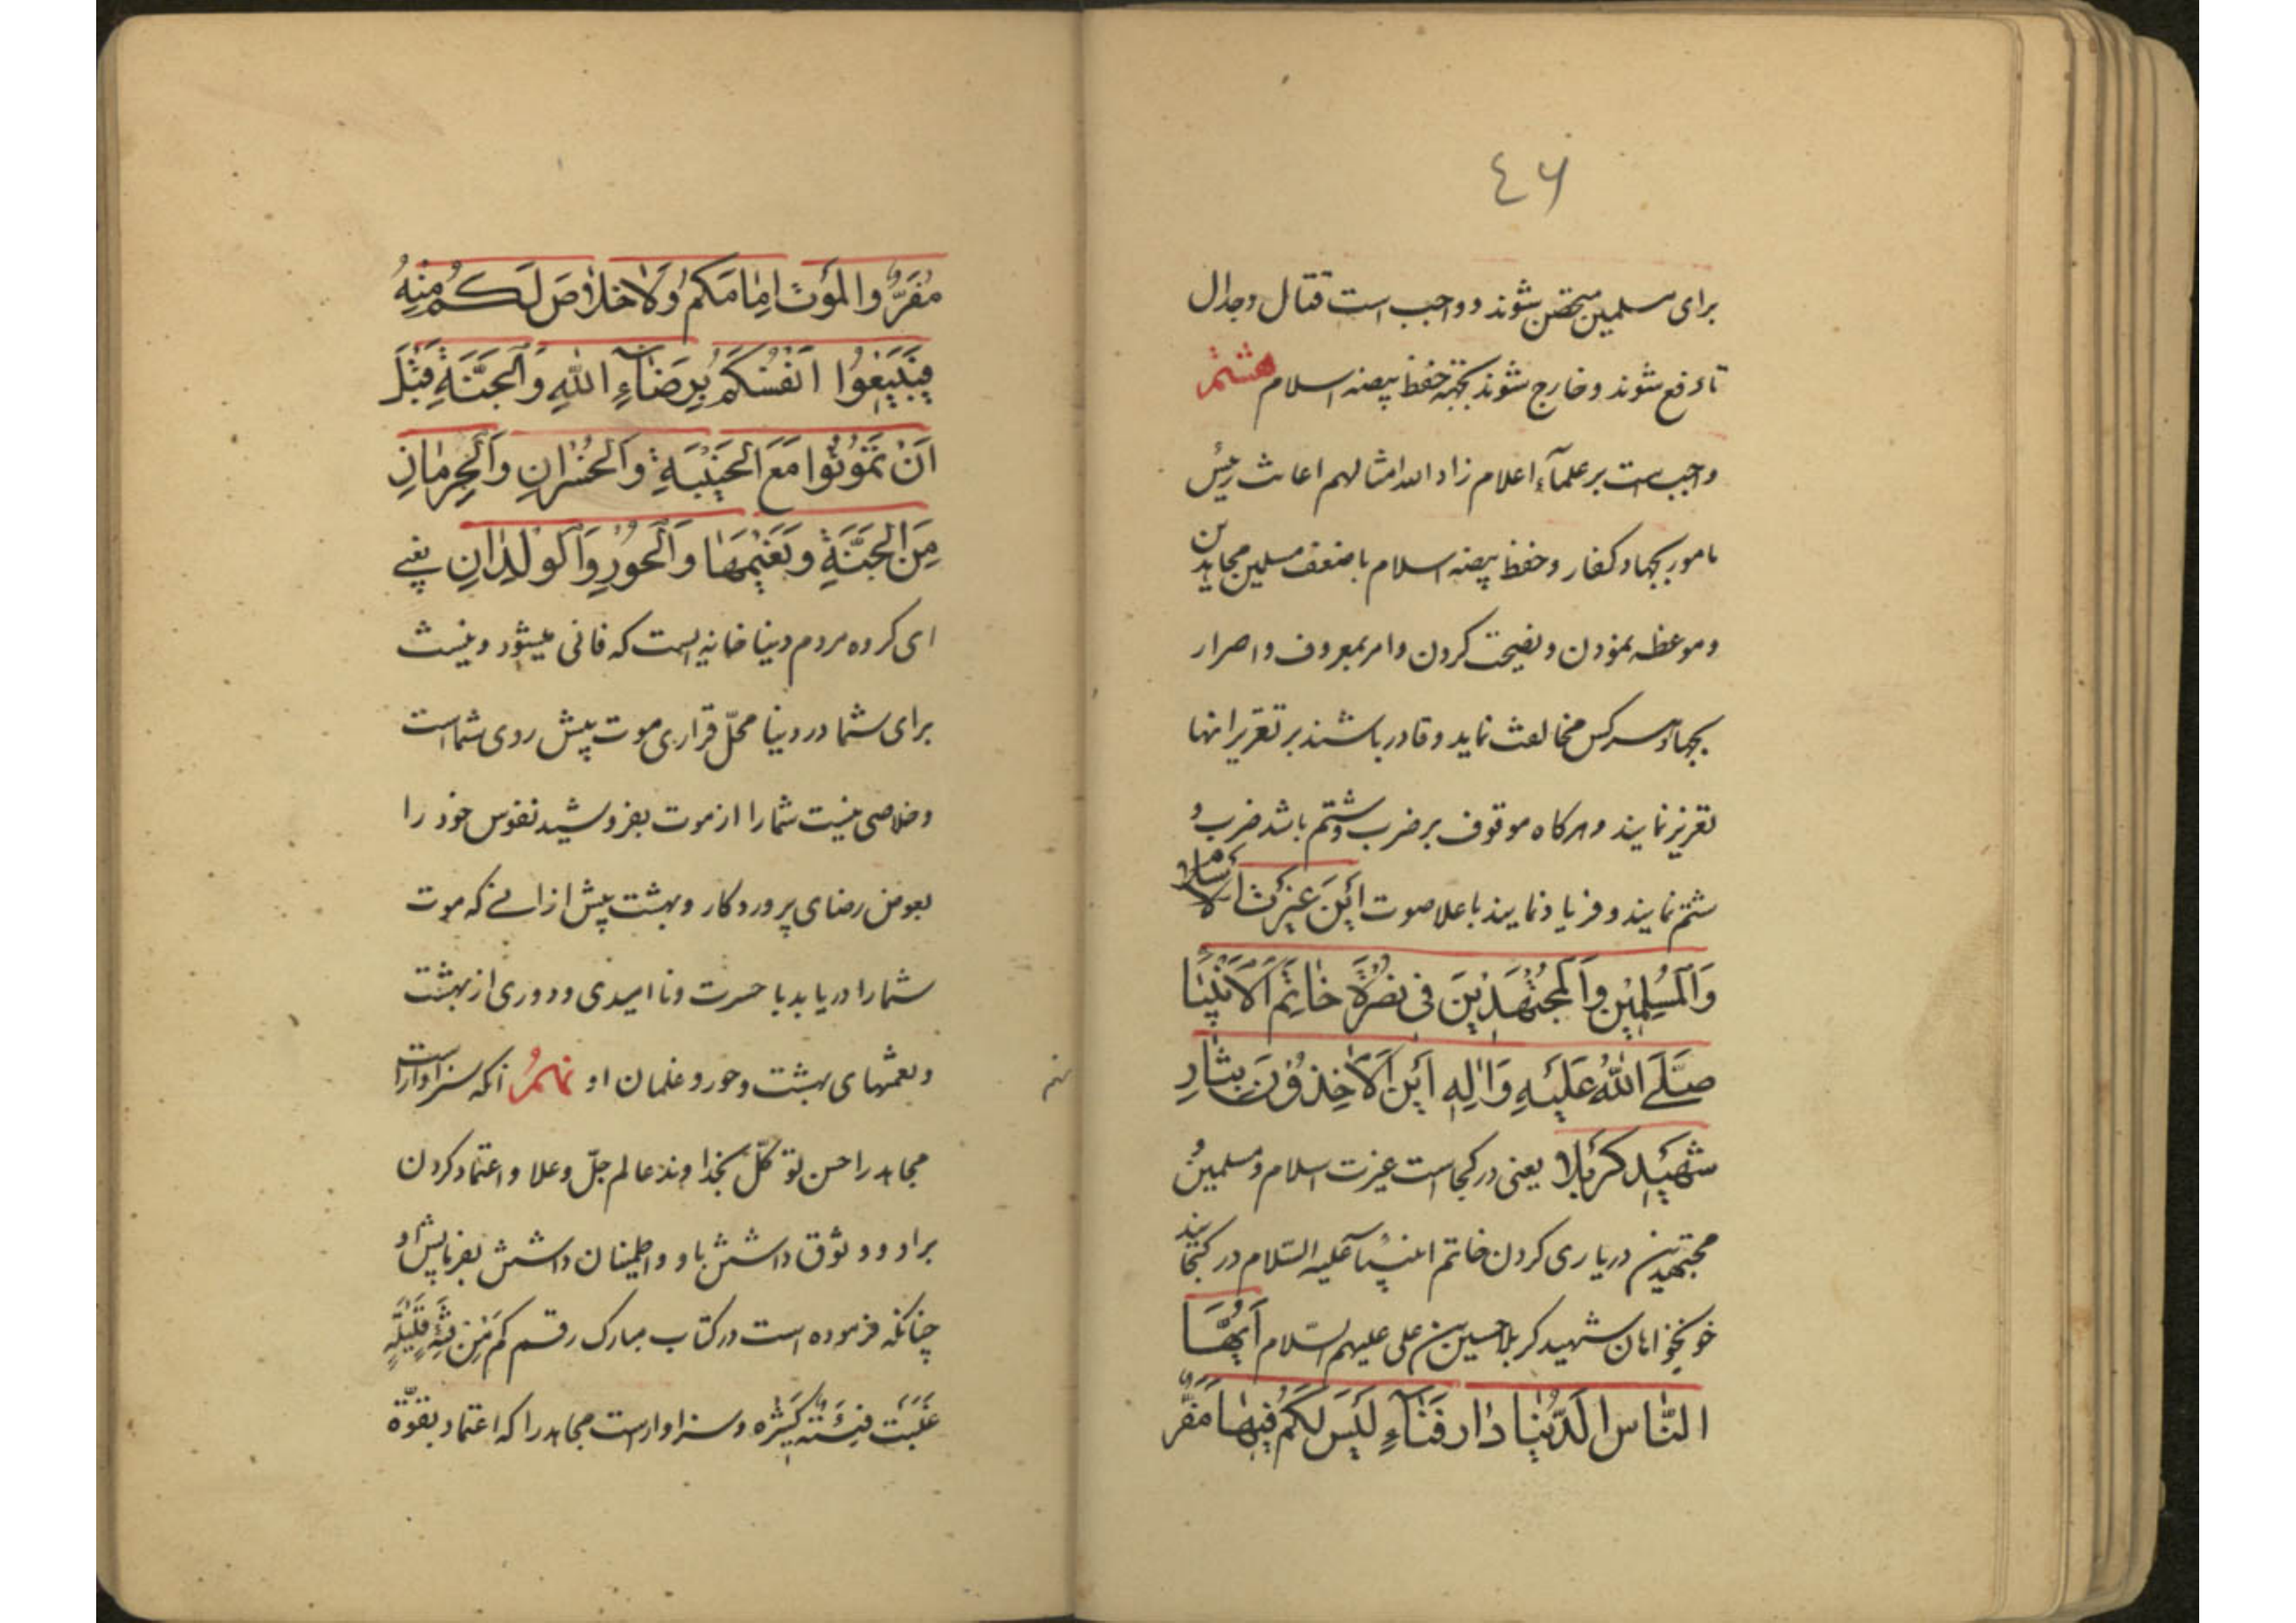 ٤۶
برای مسلمین متحصن شوند و واجب است قتال و جدال
تا دفع شوند و خارج شوند بجهة حفظ بیضه اسلام هشتم
واجب است بر علمآء اعلام زاد الله امثالهم اعانت رئیس
مامور بجهاد کفار و حفظ بیضه اسلام با ضعف مسلمین مجاهدین
و موعظه نمودن و نصیحت کردن و امر بمعروف و اصرار
بجهاد و هرکس مخالفت نماید و قادر باشند بر تعزیر انها
تعزیر نمایند و هرکاه موقوف بر ضرب و شتم باشد ضرب و
شتم نمایند و فریاد نمایند باعلا صوت اَیْنَ عِزَّتُ الاسلام
وَالْمُسْلِمینَ وَالْمُجْتَهِدینَ فی نُصْرَةِ خاتِمِ الْاَنْبِیآ
صَلَّی اللّٰهُ عَلَیْهِ وَاٰلِهِ اَیْنَ الْاٰخِذوُنَ بِثارِ
شَهیدِ کَرْبَلا یعنی در کجاست عزت اسلام و مسلمین و
مجتهدین در یاری کردن خاتم انبیآء علیه السّلام در کجایند
خونخواهان شهید کربلا حسین بن علی علیهم السّلام اَیُّهَا
النّاس الَدُّنْیا دار فَنآءٍ لَیْسَ لَکُمْ فیها مَفَرُّ
مَفَرُّ وَالْمَوْتُ اِمامَکُمْ وَلاخَلاصَ لَکُمْ مِنْهُ
فَبیعُوا اَنْفُسَکُمْ بِرِضآءِ اللّٰهِ وَالْجَنَّةِ قَبْلَ
اَنْ تَمُوتُوا مَعَ الْخَیْبَةِ وَالْخُسْرانِ وَالْحِرْمانِ
مِنَ الْجَنَّةِ وَنَعیمِها وَالْحُورِ وَالْوِلْدانِ یعنی
ای کروه مردم دنیا خانه ایست که فانی میشود و نیست
برای شما در دنیا محلّ قراری موت پیش روی شما است
و خلاصی نیست شما را از موت بفروشید نفوس خود را
بعوض رضای پروردکار و بهشت پیش از انی که موت
شما را دریابد با حسرت و ناامیدی و دوری از بهشت
و نعمتهای بهشت و حور و غلمان او نهم انکه سزاوار است
مجاهد را حسن توکّل بخداوند عالم جلّ و علا و اعتماد کردن
بر او و وثوق داشتن باو و اطمینان داشتن بفرمایش او
چنانکه فرموده است در کتاب مبارک رقم کَمْ مِنْ فِئَةٍ قَلیلَةٍ
غَلَبَت فِئَةً کَثیرَه و سزاوار است مجاهد را که اعتماد بقوّة